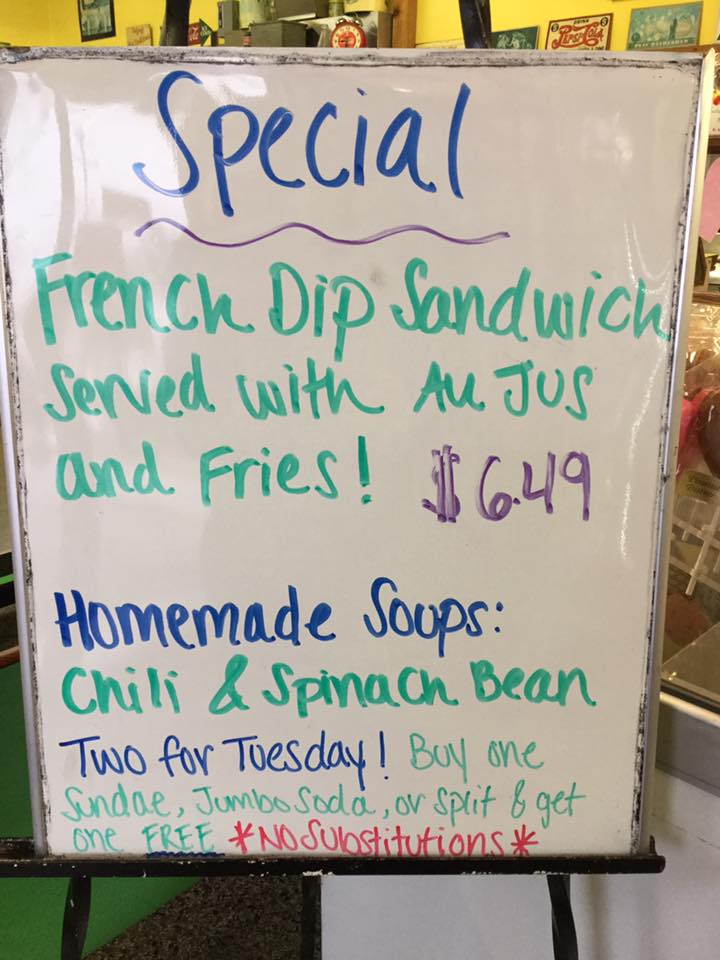 DRINK
PEPSI-COLA
Special
French Dip Sandwich
Served with Au JUS
and Fries! $6.49
Homemade Soups:
Chili & Spinach Bean
Two for Tuesday! Buy one
Sundae, Jumbo Soda, or Split & get
one FREE *NO Substitutions*